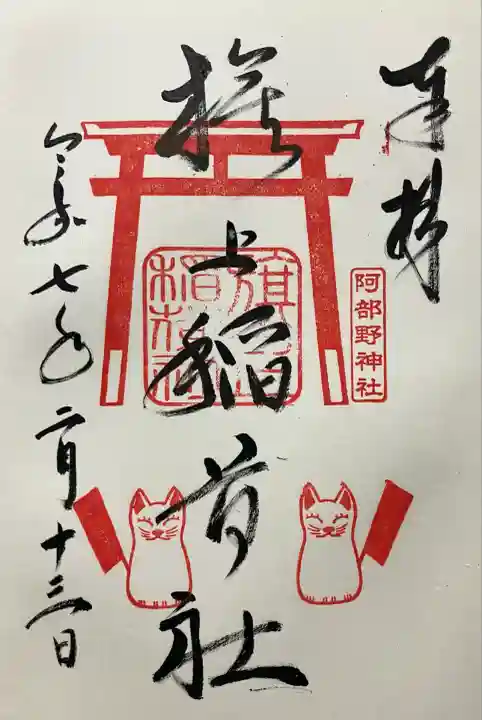 奉拝
阿部野神社
旗上稲荷社
旗上
稲荷社
令和七年二月十三日